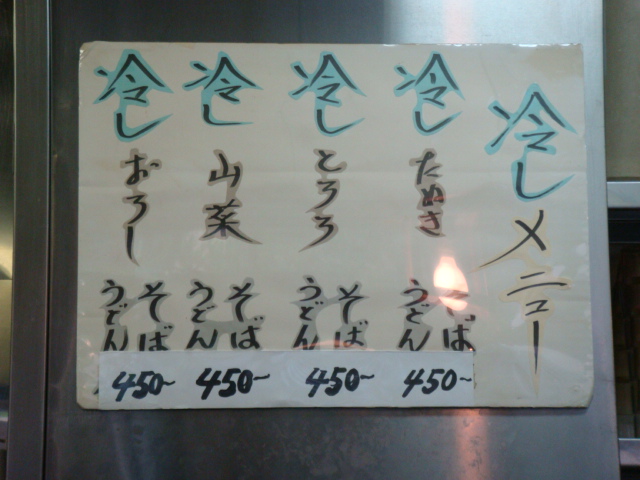 冷しメニュー
冷したぬき
そば
うどん
450~
冷しとろろ
そば
うどん
450~
冷し山菜
そば
うどん
450~
冷しおろし
そば
うどん
450~